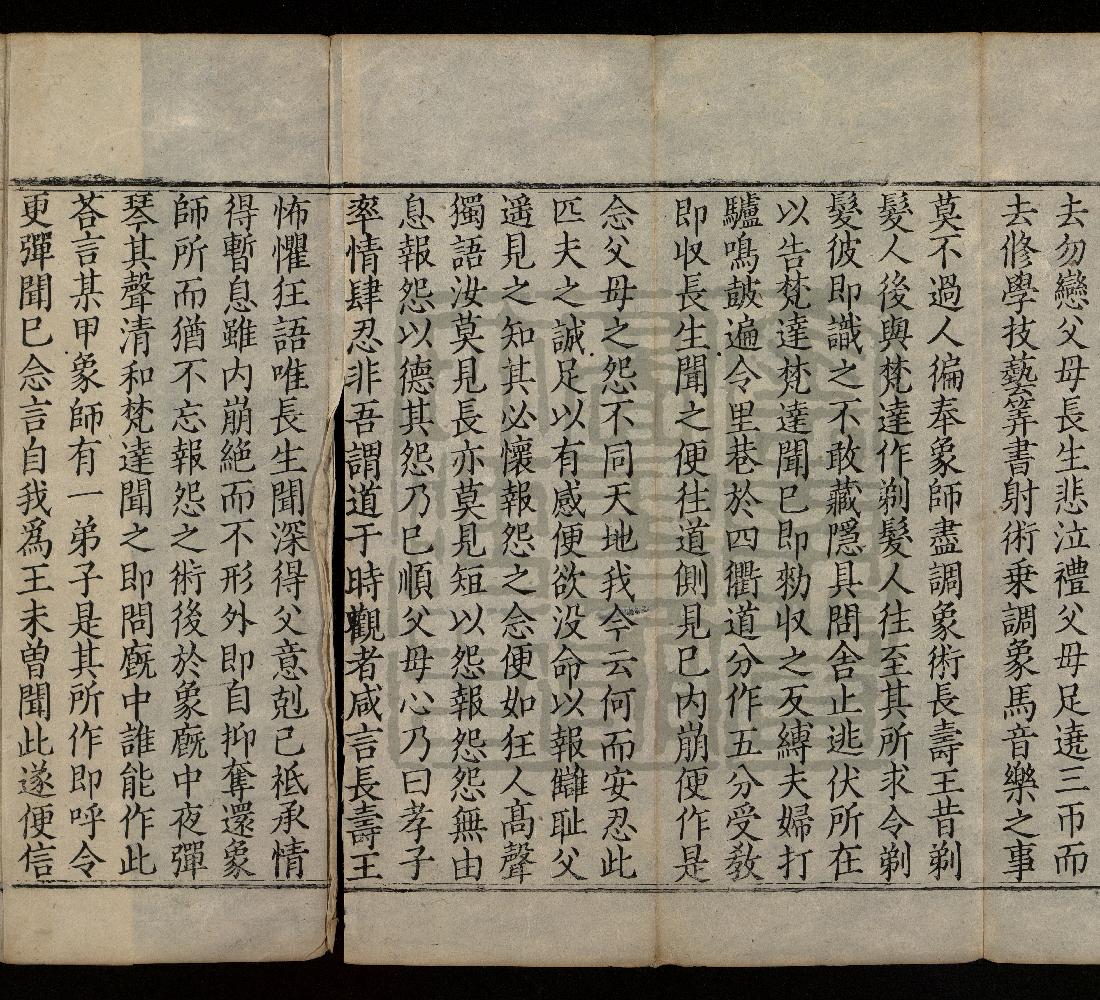 去勿戀父母長生悲泣禮父母足遶三帀而
去修學技藝筭書射術乗調象馬音樂之事
莫不過人偏奉象師盡調象術長壽王昔剃
髮人後與梵達作剃髮人往至其所求令剃
髮彼即識之不敢藏隱具問舍止逃伏所在
以告梵達梵達聞已即勑収之反縛夫婦打
驢鳴皷遍令里巷於四衢道分作五分受敎
即收長生聞之便往道側見已内崩便作是
念父母之怨不同天地我今云何而安忍此
匹夫之誠足以有感便欲没命以報讎耻父
遥見之知其必懷報怨之念便如狂人髙聲
獨語汝莫見長亦莫見短以怨報怨怨無由
息報怨以德其怨乃已順父母心乃曰孝子
率情肆忍非吾謂道于時觀者咸言長壽王
怖懼狂語唯長生聞深得父意剋己祗承情
得暫息雖内崩絶而不形外即自抑奪還象
師所而猶不忘報怨之術後於象廐中夜彈
琴其聲清和梵達聞之即問廐中誰能作此
荅言某甲象師有一弟子是其所作即呼令
更彈聞已念言自我爲王未曽聞此遂便信